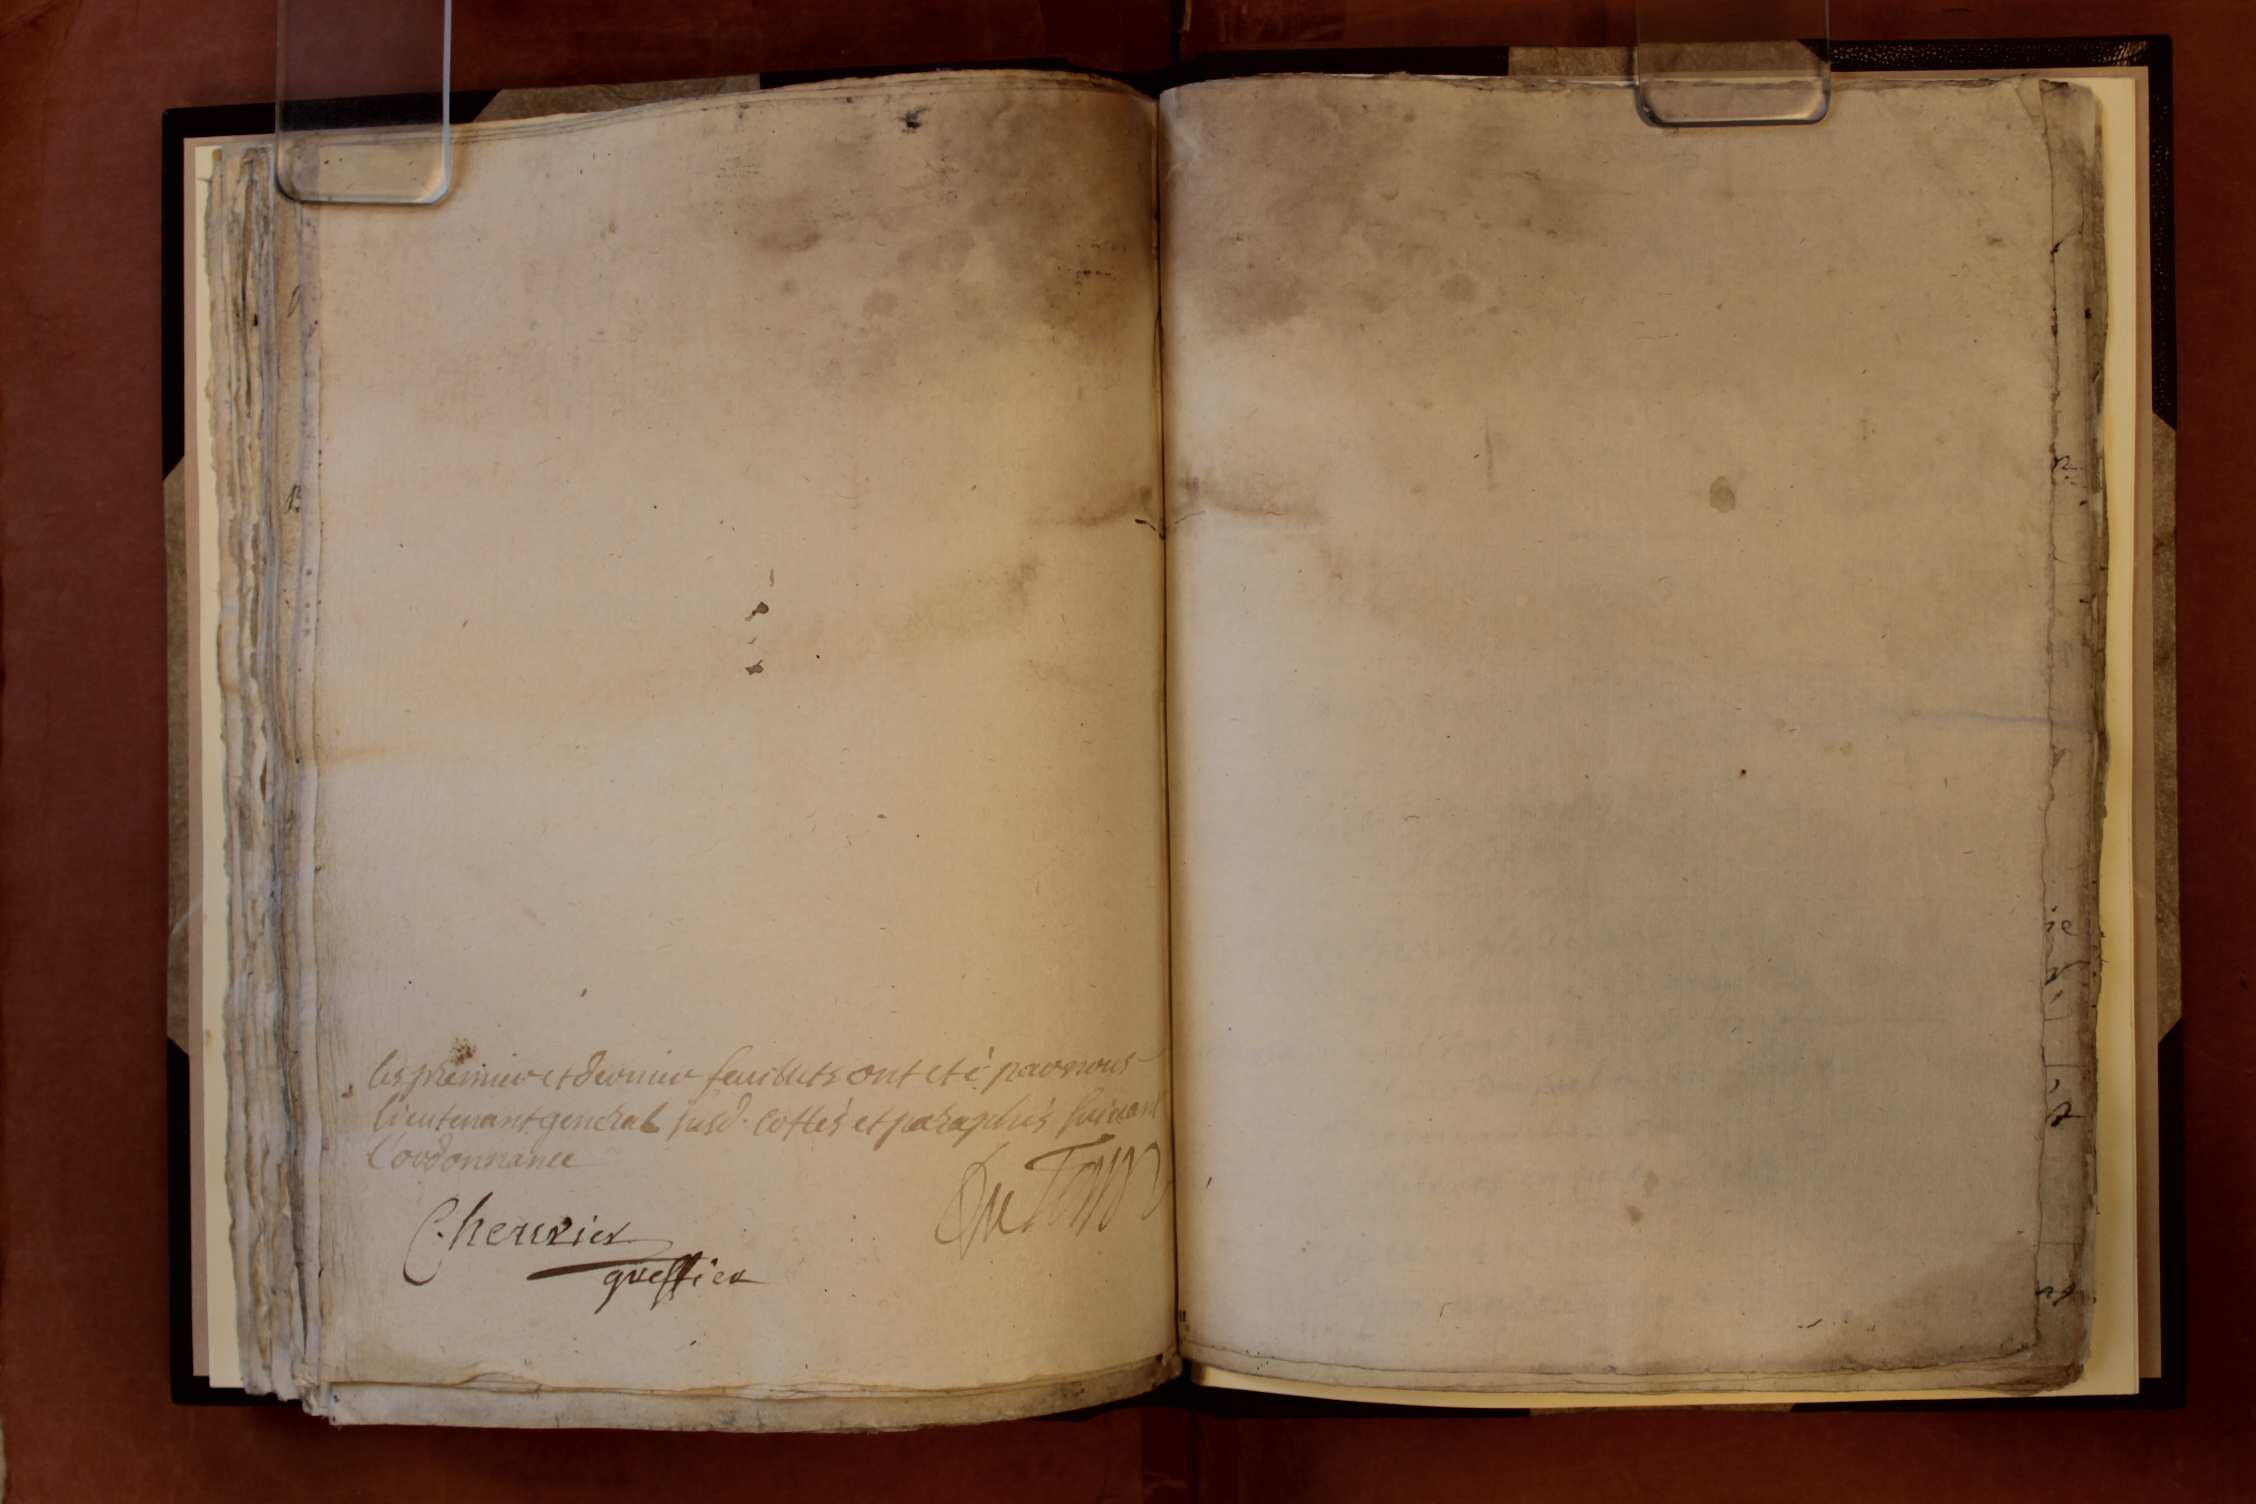 les premier et dernier feuillets ont eté par nous
lieutenant general susd. cottés et paraphés suivant
l'ordonnance
Cheurier
DuTour
greffier